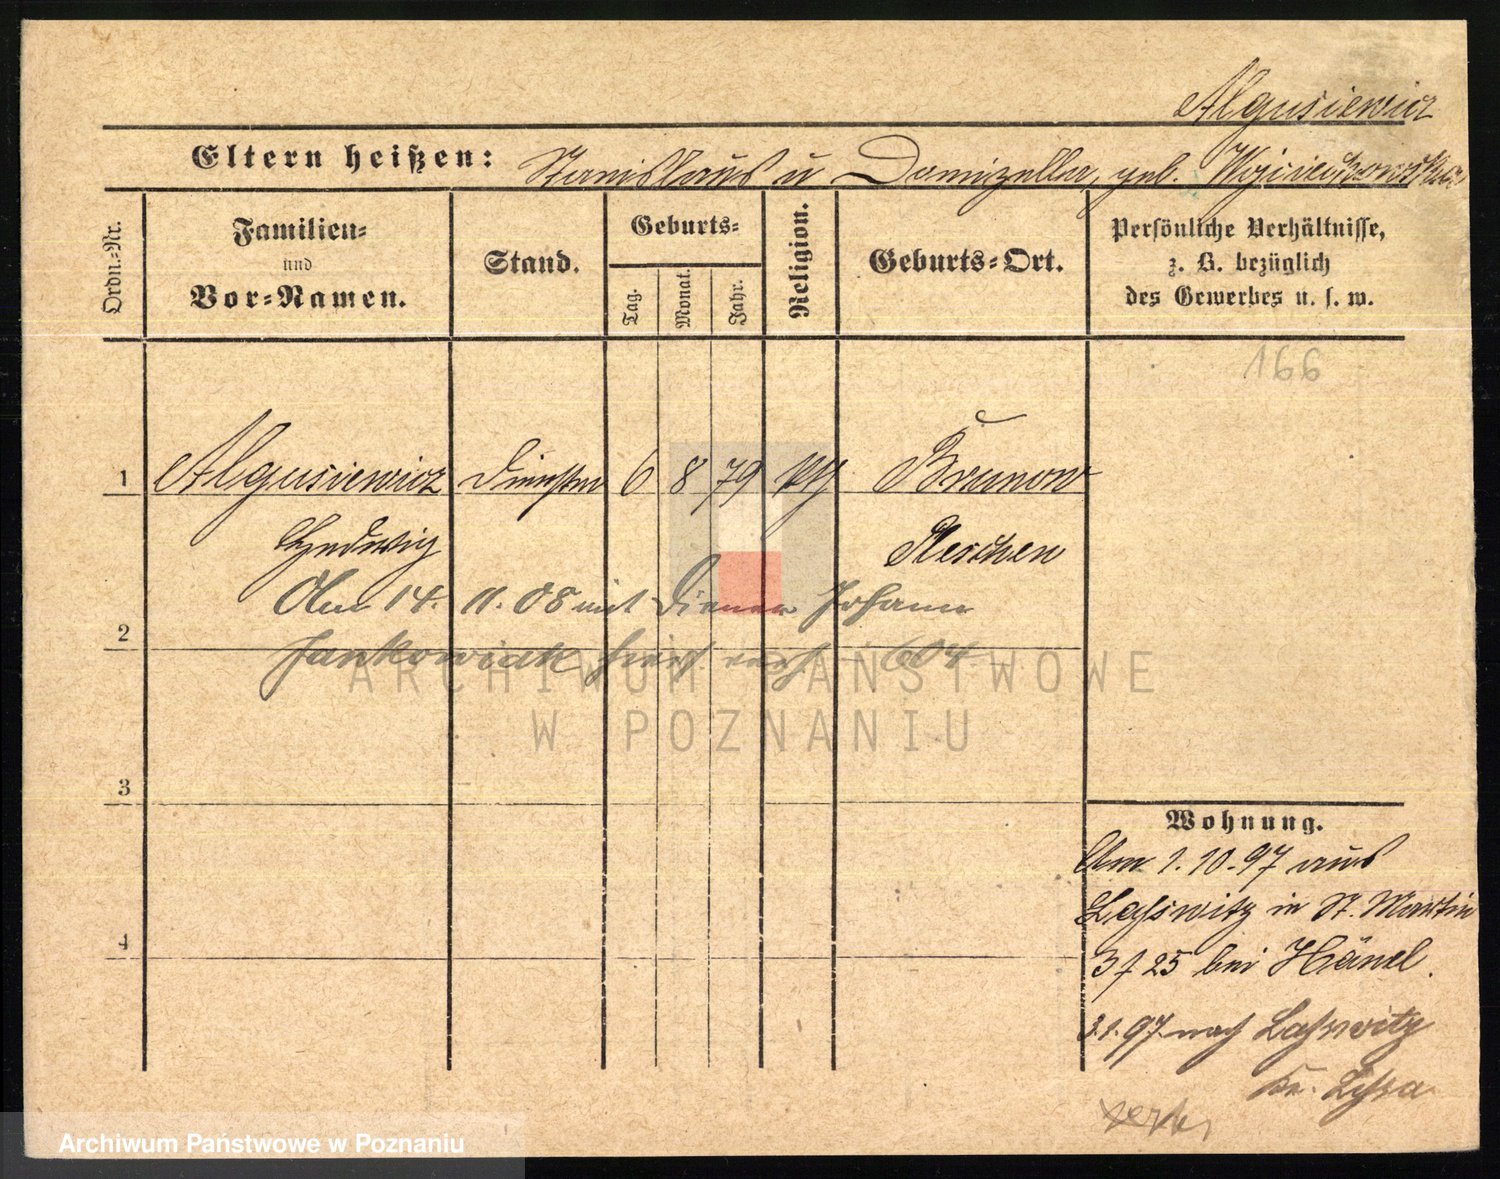 Algusiewicz
Eltern heißen: Stanislaus u Domizella, geb. Wojciechowska
Ordn.-Nr.
Familien-
und
Vor-Namen.
Stand.
Geburts-
Tag.
Monat.
Jahr.
Religion.
Geburts-Ort.
Persönliche Verhältnisse,
z. B. bezüglich
des Gewerbes u. s. w.
166
1 Algusiewicz 6 8 79 Brunow
Hedwig Pleschen
Am 14. 11. 08 mit Diener Johann
2
Jankowiak hier verh. 604
3
Wohnung.
Am 1.10.97 aus
Laßwitz in St. Martin
4
25 bei Hänel.
3.1.97 nach Laßwitz
Kr. Lissa
ARCHIWUM PAŃSTWOWE
W POZNANIU
Archiwum Państwowe w Poznaniu